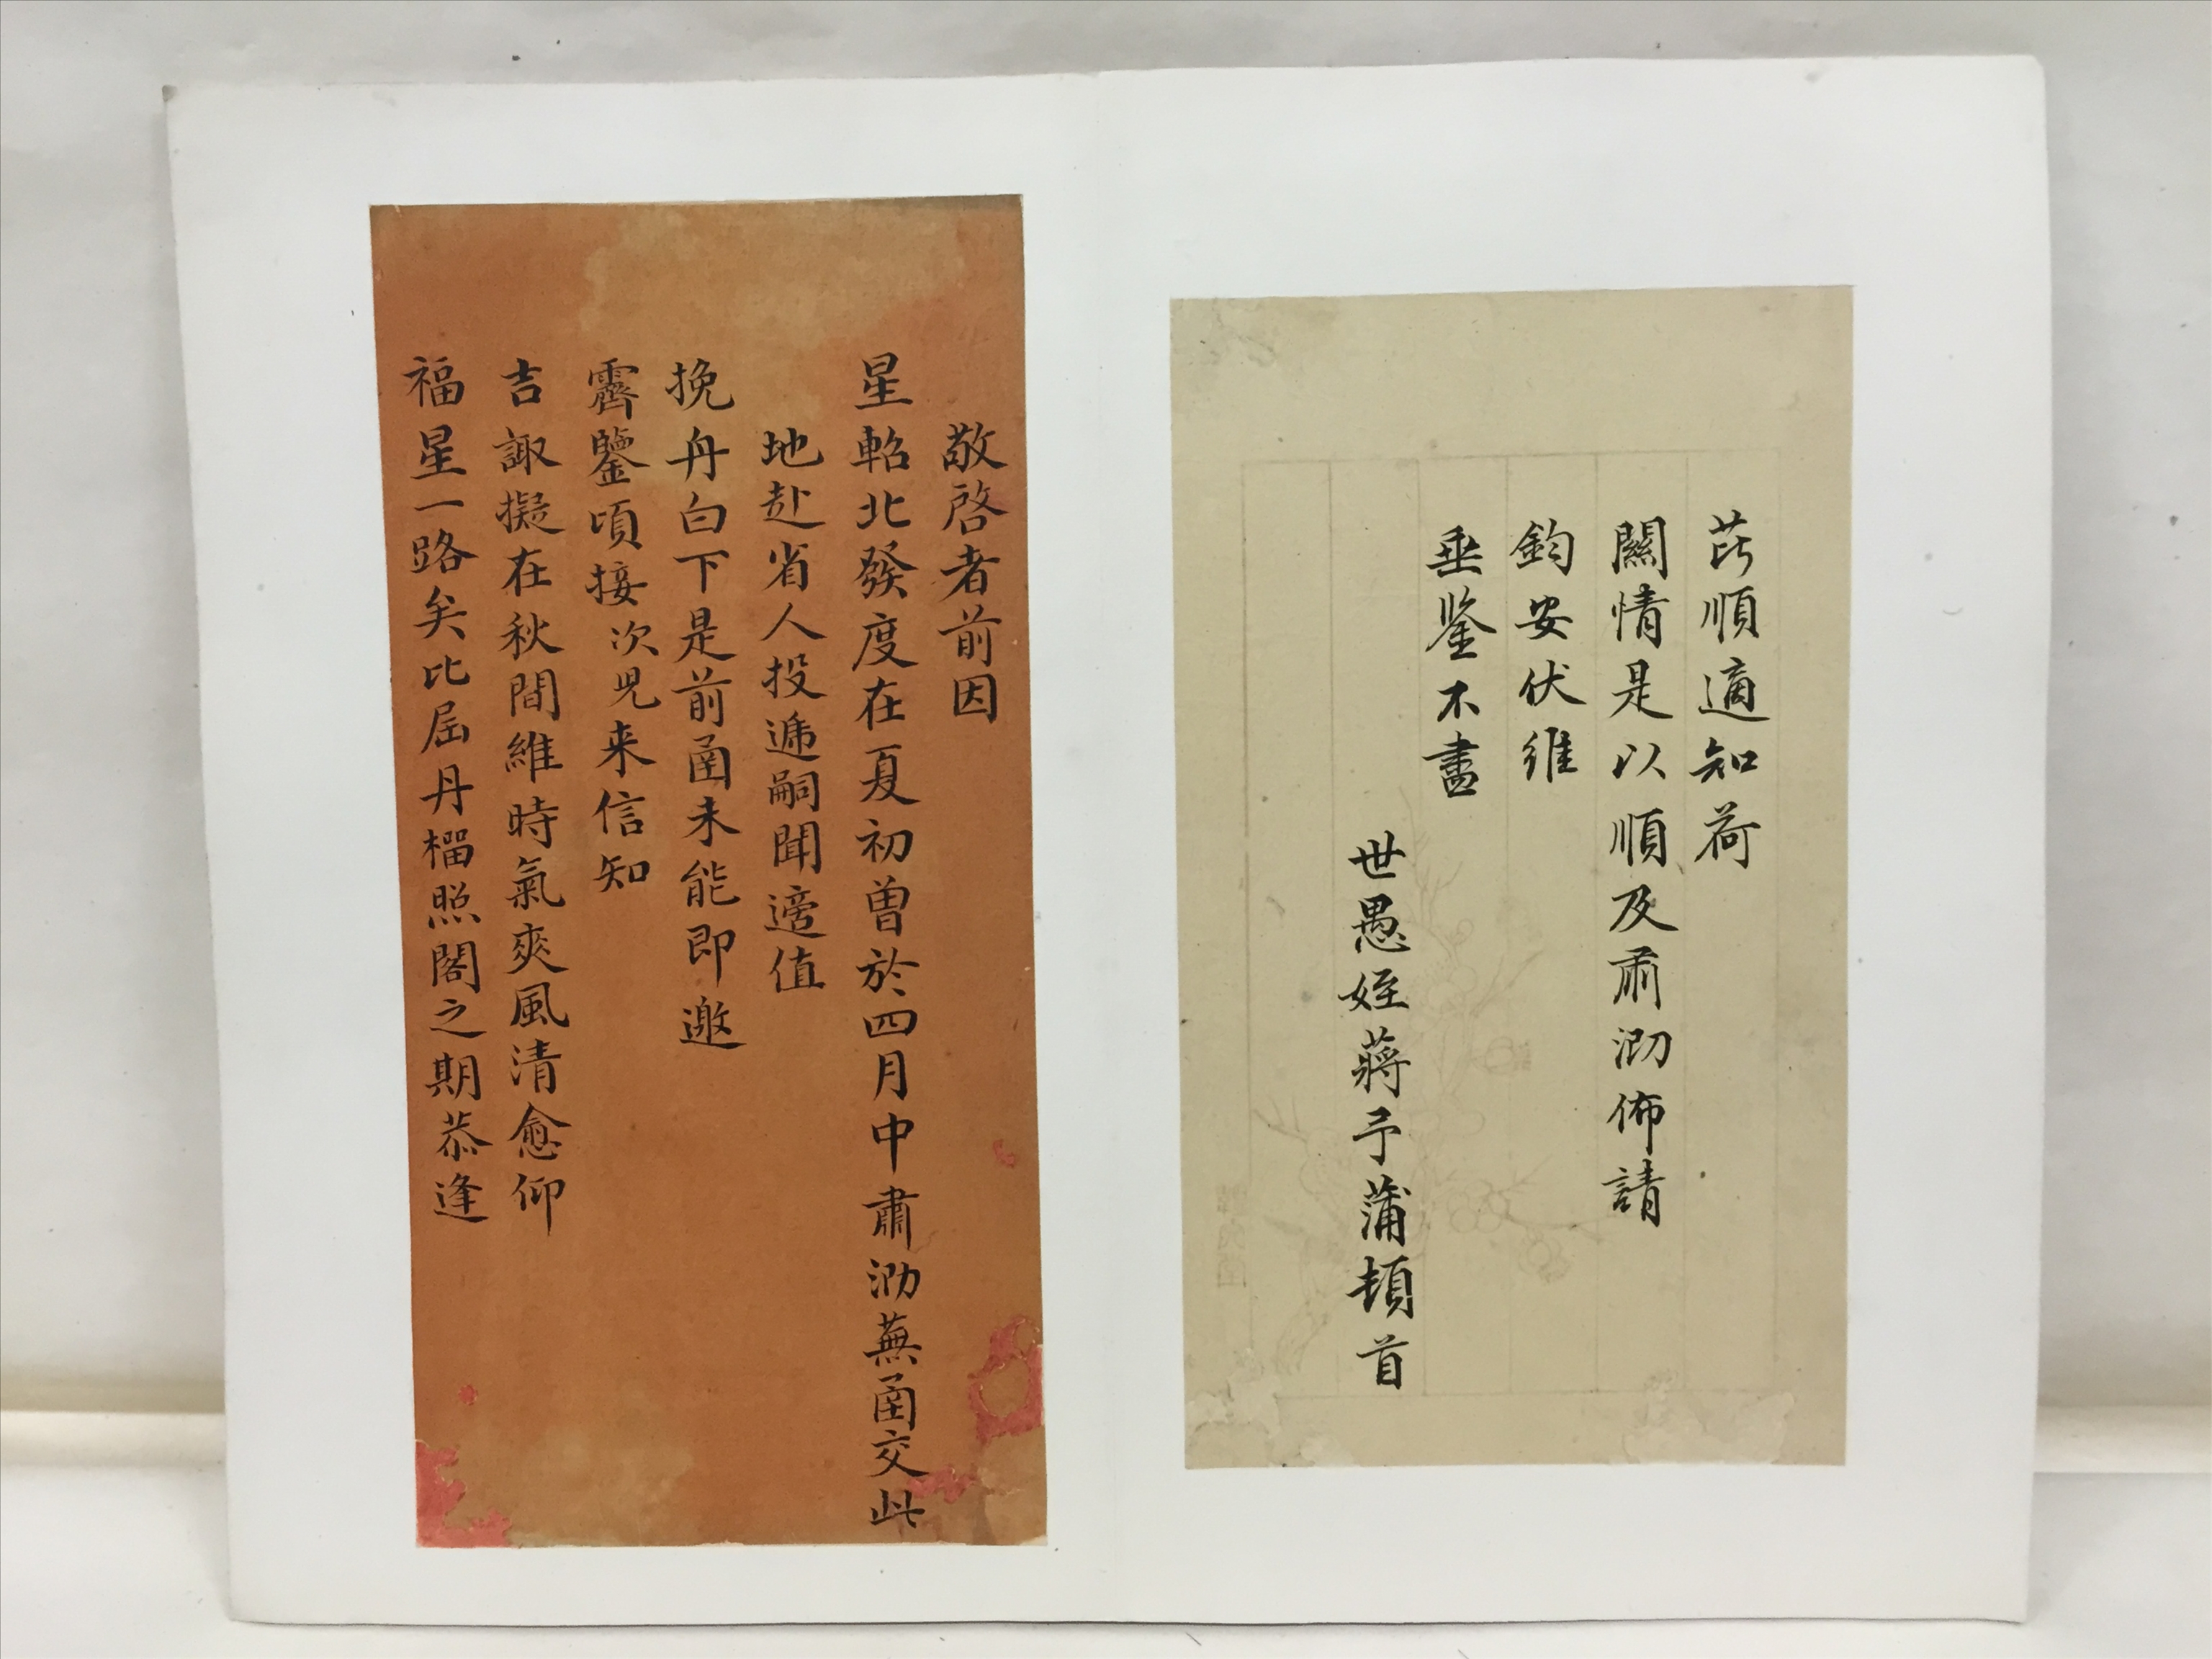 茈順適知荷
關情是以順及肅泐佈請
鈞安伏維
垂鑒不盡
世愚姪蔣予蒲頓首
敬啓者前因
星軺北發度在夏初曾於四月中肅泐蕪圅交此
地赴省人投遞嗣聞適值
挽舟白下是前圅未能即邀
霽鑒頃接次児来信知
吉諏擬在秋間維時氣爽風清愈仰
福星一路矣比屆丹榴照閣之期恭逢